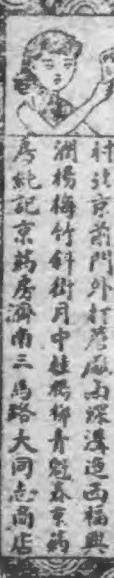 村北京前門外打磨廠南深溝迤西福興
潤楊梅竹斜街月中桂楊柳青春京药
房純記京药房濟南三馬路大同志商店